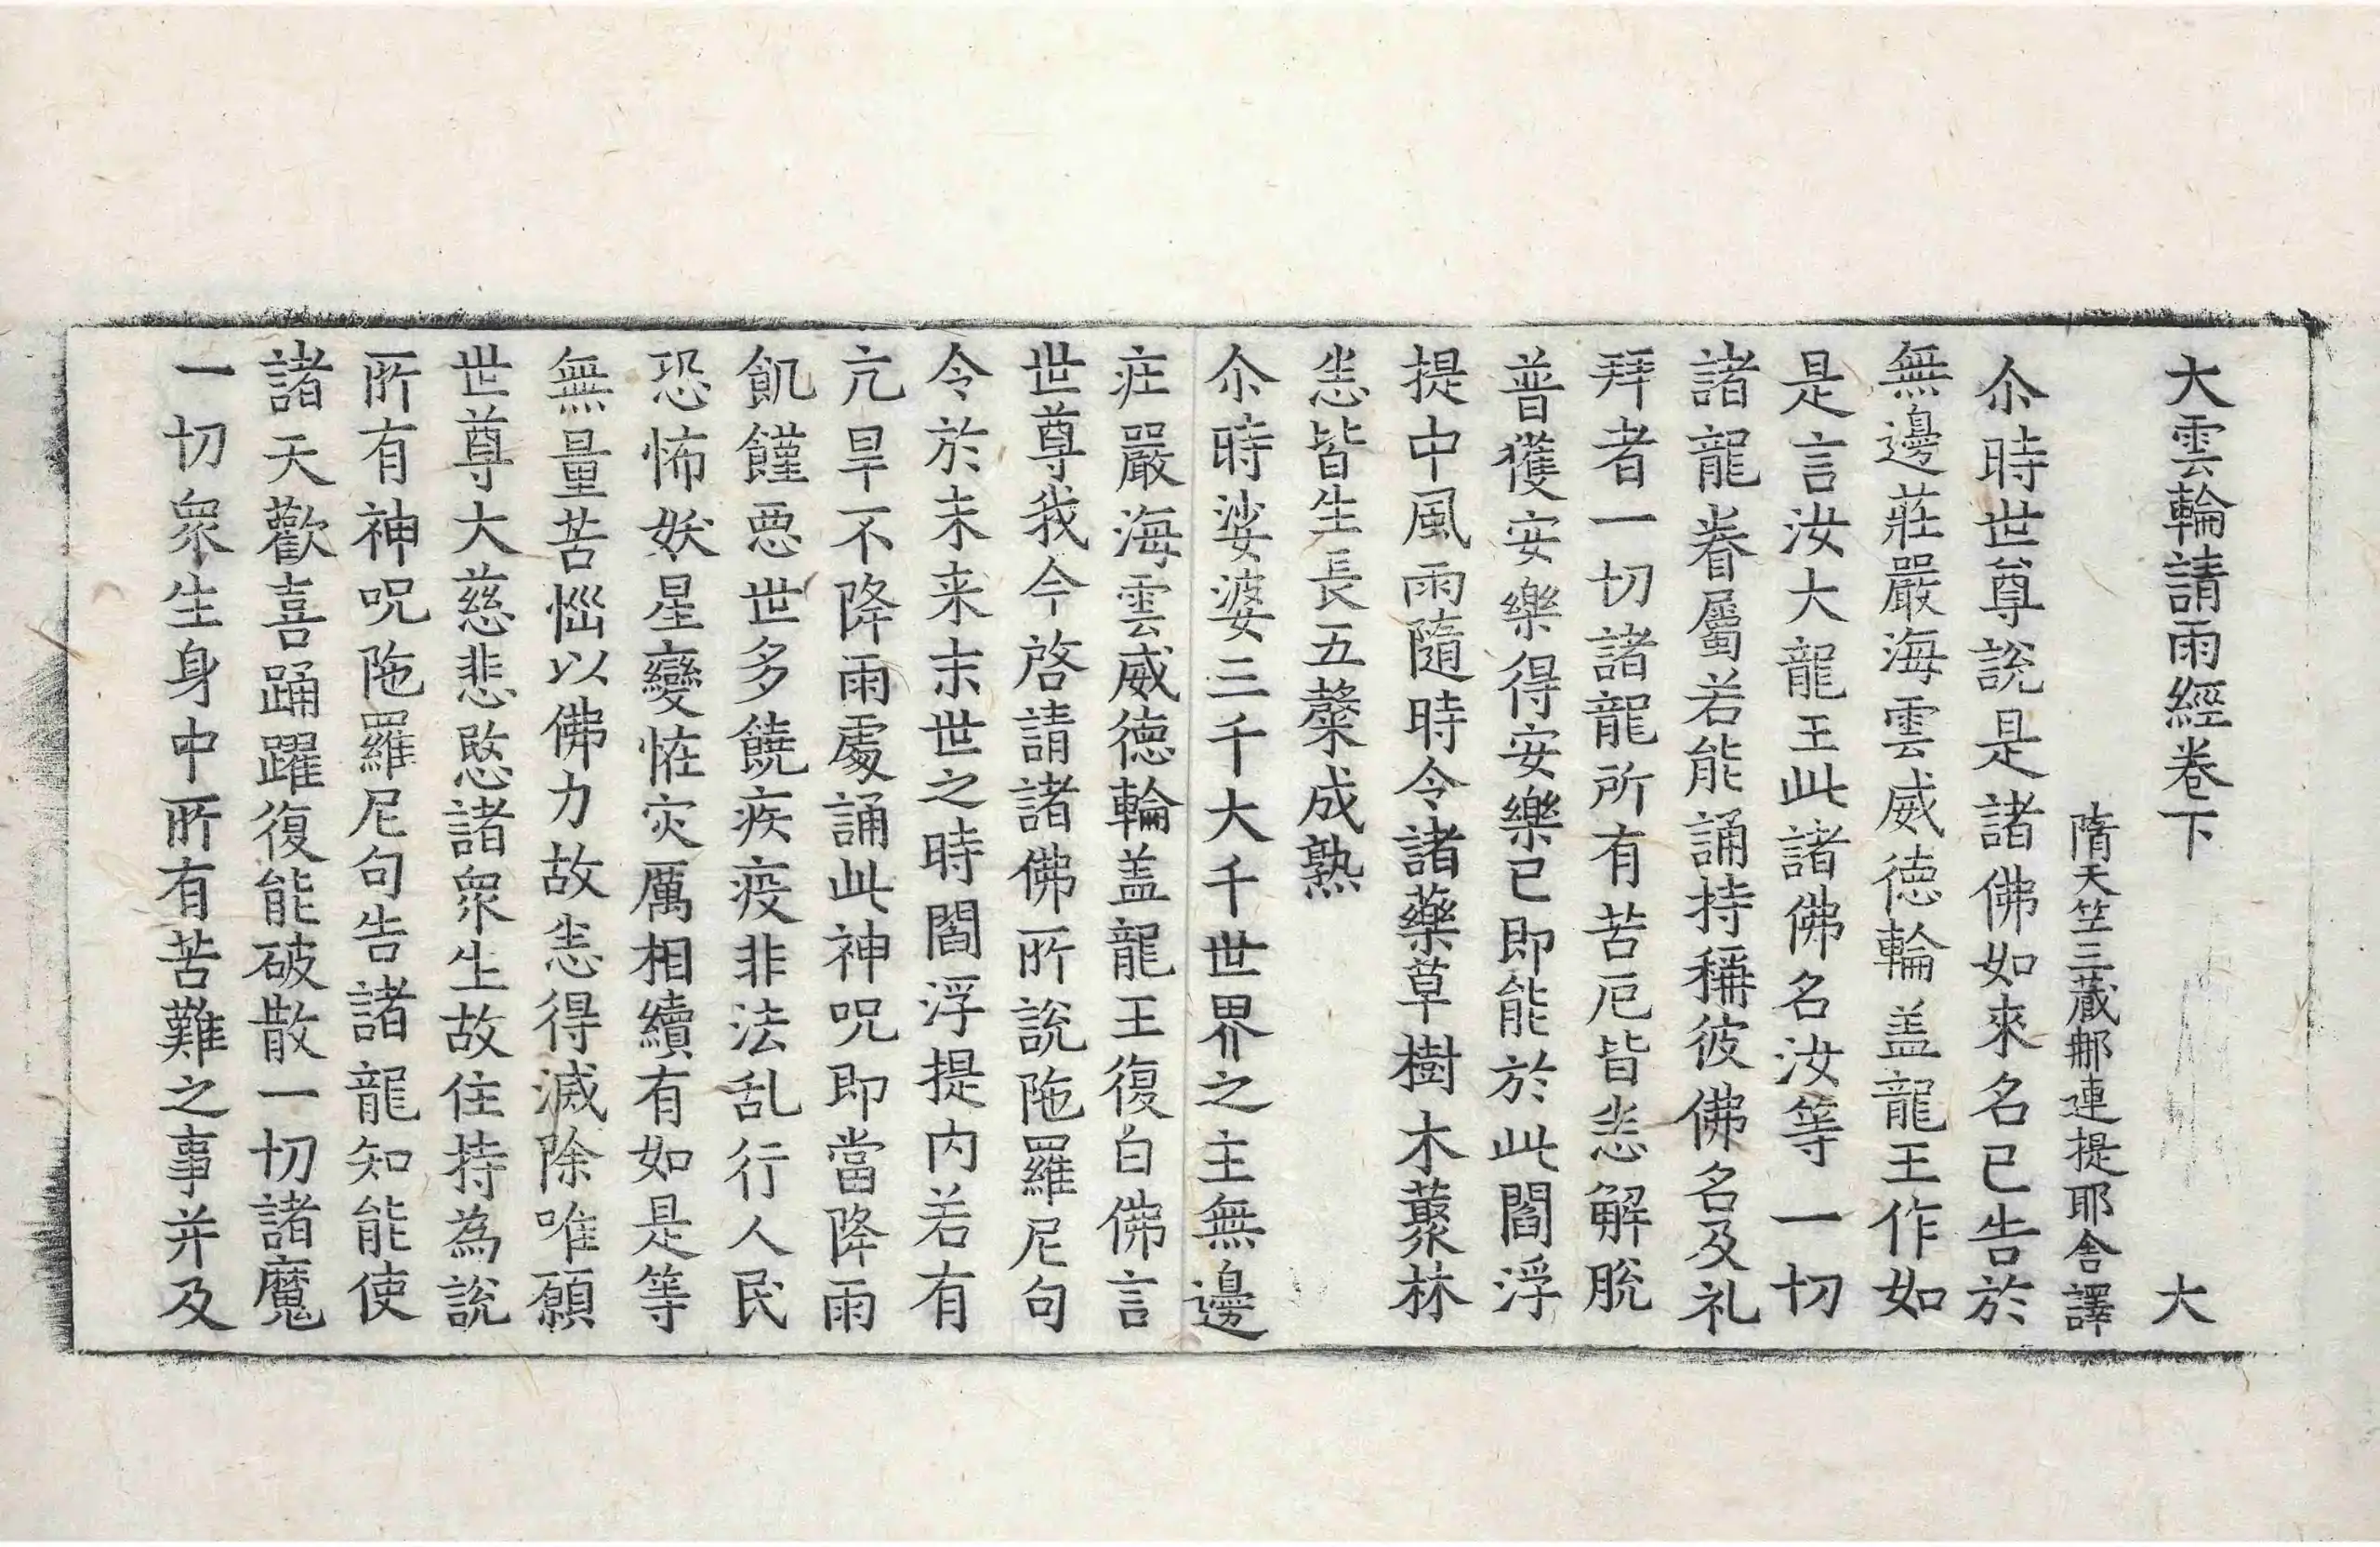 大雲輪請雨經卷下 大
隋天竺三藏那連提耶舍譯
尒時世尊說是諸佛如來名已告於
無邊莊嚴海雲威德輪盖龍王作如
是言汝大龍王此諸佛名汝等一切
諸龍眷屬若能誦持稱彼佛名及礼
拜者一切諸龍所有苦厄皆悉解脫
普獲安樂得安樂已即能於此閻浮
提中風雨隨時令諸藥草樹木叢林
悉皆生長五糓成熟
尒時娑婆三千大千世界之主無邊
莊嚴海雲威德輪盖龍王復白佛言
世尊我今啓請諸佛所說陁羅尼句
令於未来末世之時閻浮提内若有
亢旱不降雨處誦此神呪即當降雨
飢饉惡世多饒疾疫非法乱行人民
恐怖妖星變恠灾厲相續有如是等
無量苦惱以佛力故悉得滅除唯願
世尊大慈悲愍諸衆生故住持為說
所有神呪陁羅尼句告諸龍知能使
諸天歡喜踊躍復能破散一切諸魔
一切衆生身中所有苦難之事并及